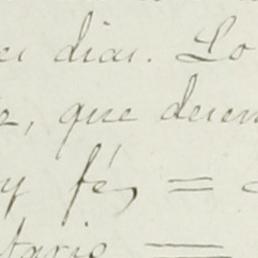 dias. Lo
, que desem
y fé, =
tario =